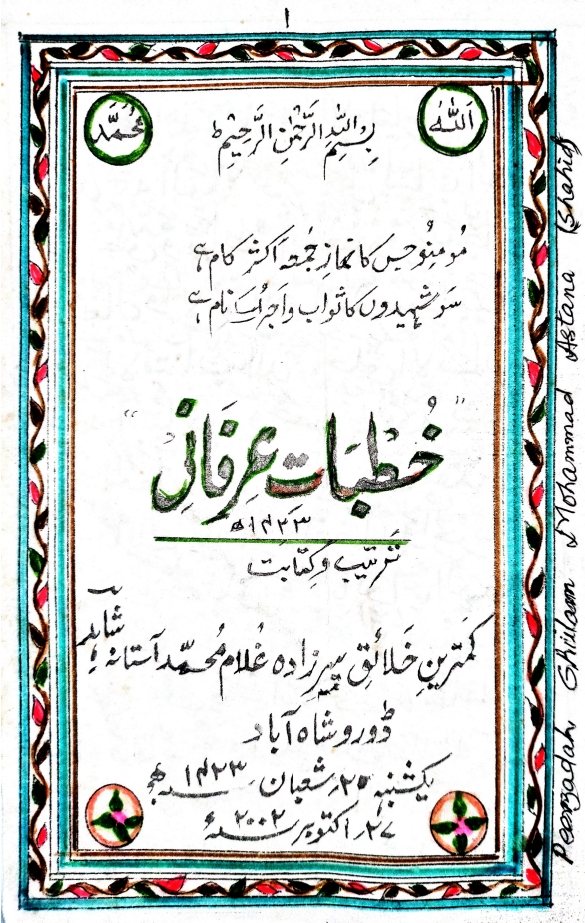 ۱
اَللّٰهُ
بِسْمِ اللّٰهِ الرَّحْمٰنِ الرَّحِيْمِ ط
مُحَمَّد
مُومِنُو جس کا نمازِ جُمعہ اکثر کام ہے
سَو شہیدوں کا ثواب و اجر اُسکے نام ہے
"خُطبَات عِرفَانی"
۱۴۲۳ھ
تَرتیب و کتابت
کمَترینِ خَلائق پیرزادہ غُلام مُحمّد آستانہ شاہد
ڈورو شاہ آباد
یکشنبہ ۲۰ شعبان سنہ ۱۴۲۳ھ
۲۷ اکتوبر سنہ ۲۰۰۲ء
Peerzadah Ghulam Mohammad Astana (Shahid)